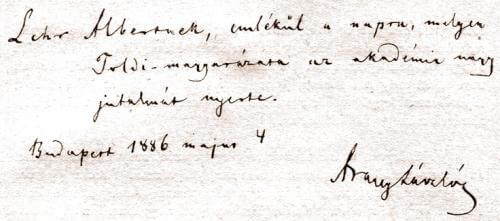 Lehr Albertnek, emlékül a napra, melyen
Toldi-magyarázata az akadémia nagy
jutalmát nyerte.
Budapest 1886 május 4
Arany László